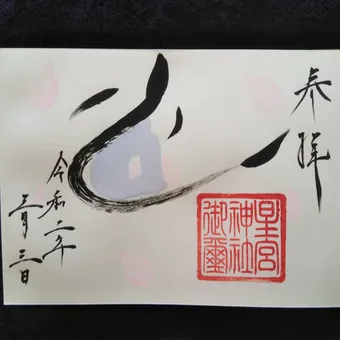 奉拝
心
星宮
神社
御璽
令和二年
三月三日